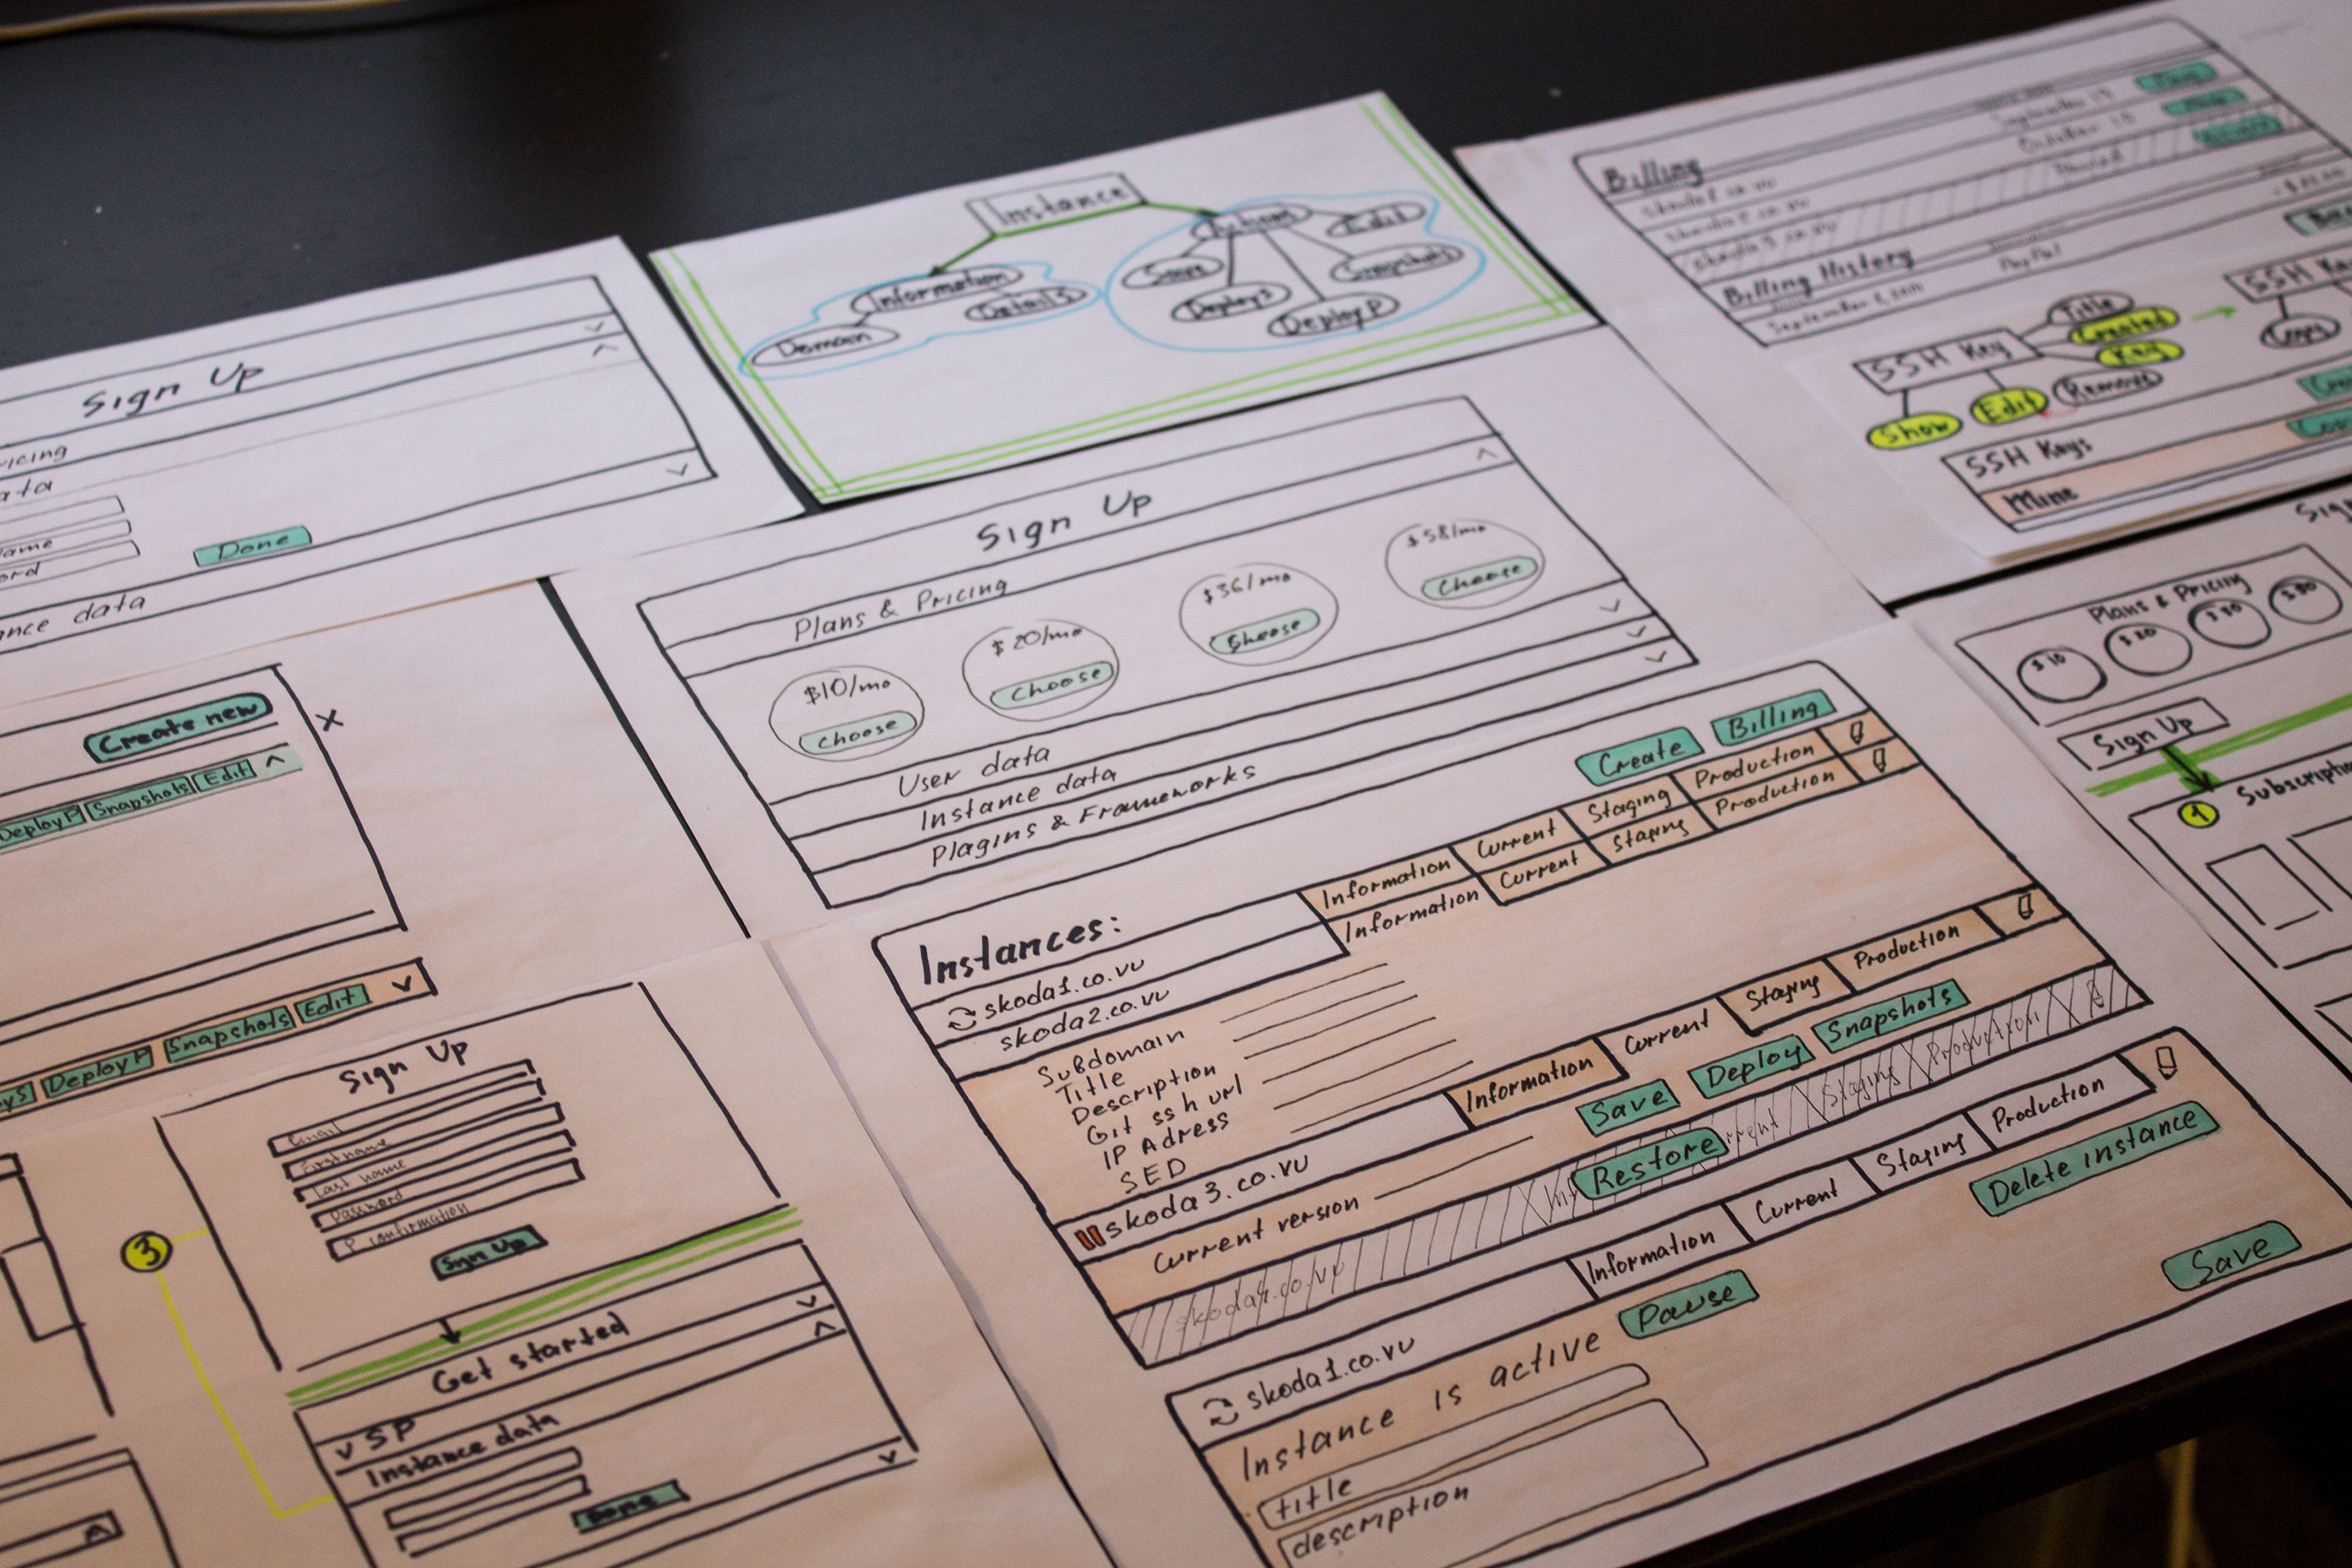 Sign Up
data
Done
Instance
Information
Details
Domain
Actions
Edit
Save
Snapshots
Deploy S
Deploy P
Billing
September 19
October 19
Billing History
PayPal
SSH Key
Title
Created
Key
Remove
Edit
Show
SSH Key
Copy
SSH Keys
Mine
Sign Up
Plans & Pricing
$10/mo
Choose
$20/mo
Choose
$36/mo
Choose
$58/mo
Choose
User data
Instance data
Plagins & Frameworks
Plans & Pricing
$10
$20
Sign Up
1
Create new
X
Deploy P
Snapshots
Edit
Deploy P
Snapshots
Edit
Create
Billing
Instances:
skoda1.co.vu
Information
Current
Staging
Production
skoda2.co.vu
Information
Current
Staging
Production
Subdomain
Title
Description
Git ssh url
IP Adress
SED
skoda3.co.vu
Information
Current
Staging
Production
Current version
Save
Deploy
Snapshots
skoda4.co.vu
Restore
Staging
Production
skoda1.co.vu
Information
Current
Staging
Production
Instance is active
Pause
Delete instance
title
description
Save
3
Sign Up
Email
Firstname
Last name
Password
P confirmation
Sign Up
Get started
SP
Instance data
Done